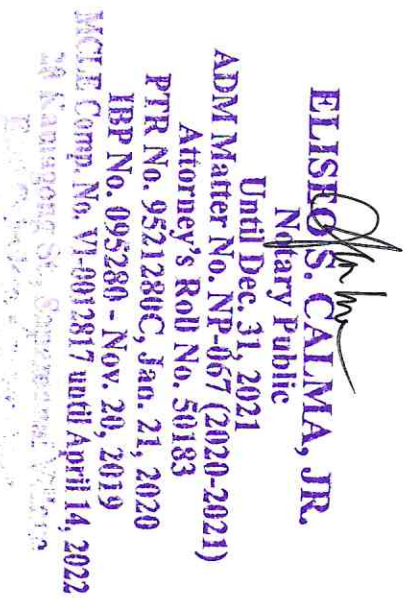 ELISEO S. CALMA, JR.
Notary Public
Until Dec. 31, 2021
ADM Matter No. NP-067 (2020-2021)
Attorney's Roll No. 50183
PTR No. 9521280C, Jan. 21, 2020
IBP No. 095280 - Nov. 20, 2019
MCLE Comp. No. VI-0012817 until April 14, 2022
St.,